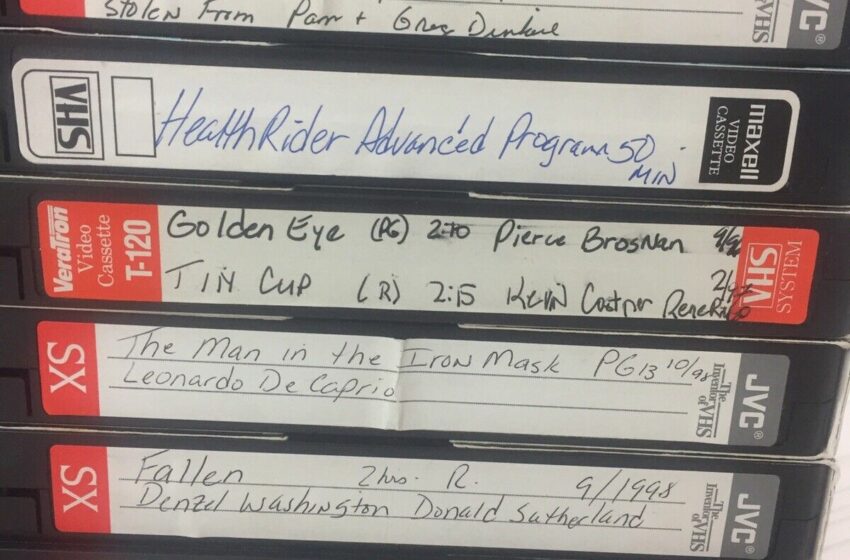 Stolen From Pam + Greg
The Inventor of VHS
JVC®
VHS
HealthRider Advanced Program 50
MIN
maxell
VIDEO
CASSETTE
VeraTron
Video
Cassette
T-120
Golden Eye (PG) 2:10 Pierce Brosnan 9/96
TIN CUP (R) 2:15 Kevin Costner
VHS
SYSTEM
SX
The Man in the Iron Mask PG13 10/98
Leonardo De Caprio
The Inventor of VHS
JVC®
SX
Fallen 2hrs. R. 9/1998
Denzel Washington Donald Sutherland
The Inventor of VHS
JVC®